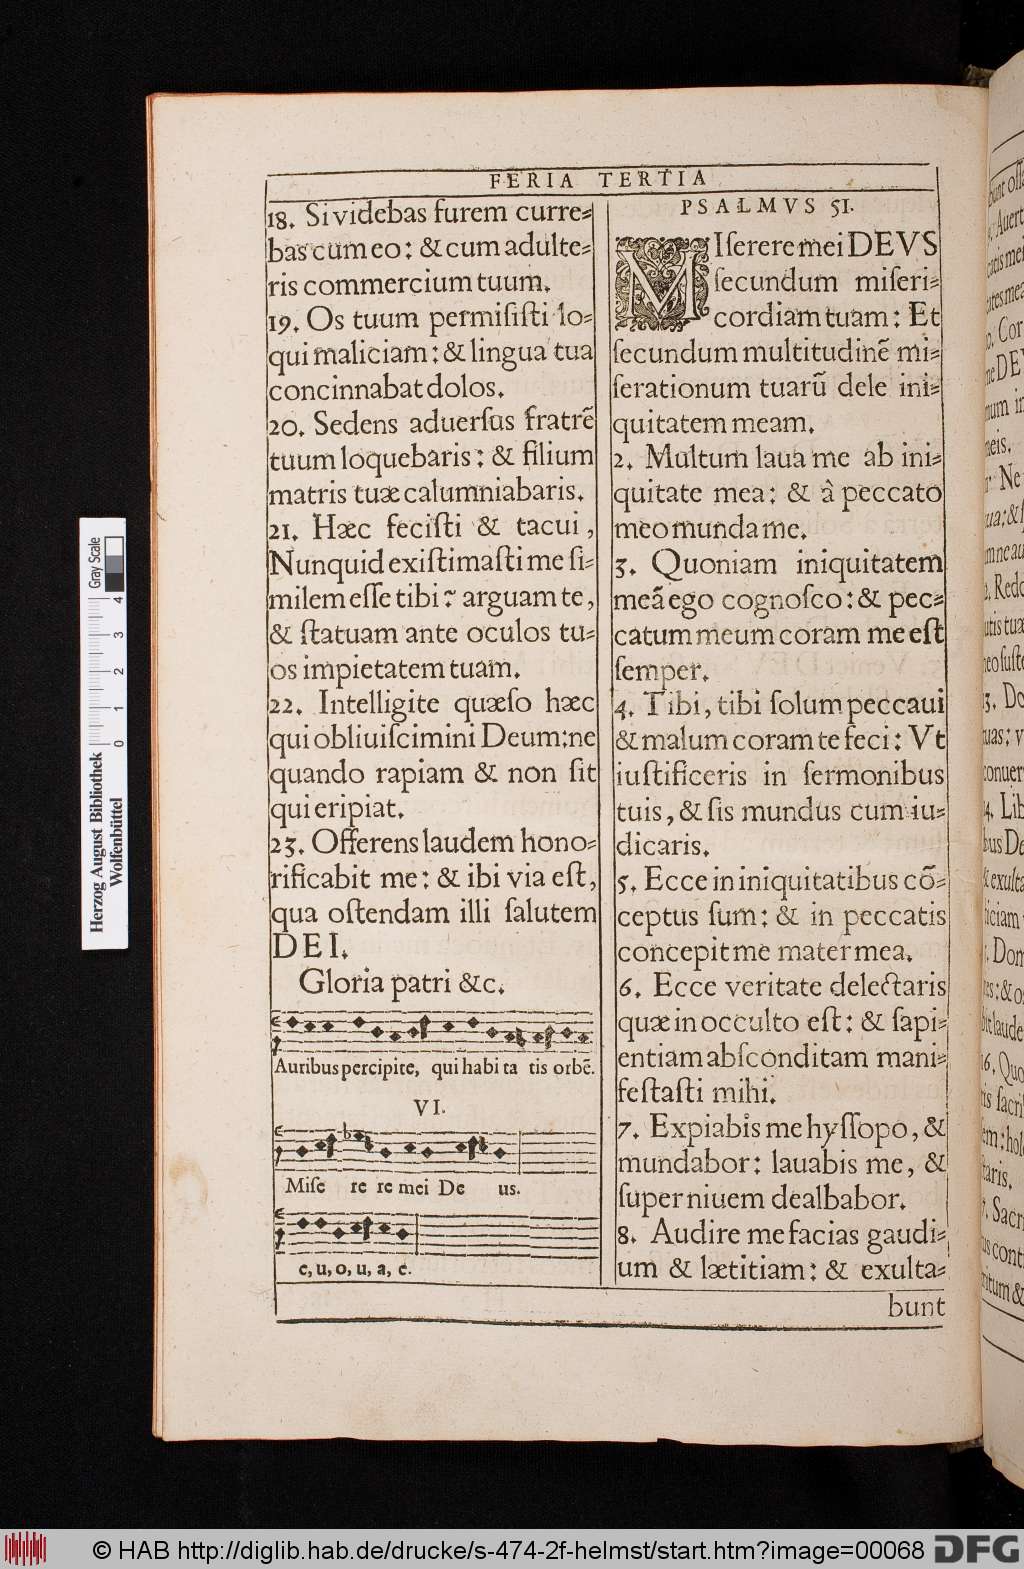 FERIA TERTIA
18. Si videbas furem curre=
bas cum eo: & cum adulte=
ris commercium tuum.
19. Os tuum permisiſti lo=
qui maliciam: & lingua tua
concinnabat dolos.
20. Sedens aduerſus fratrẽ
tuum loquebaris: & filium
matris tuæ calumniabaris.
21. Hæc feciſti & tacui,
Nunquid exiſtimaſti me ſi=
milem eſſe tibi? arguam te,
& ſtatuam ante oculos tu=
os impietatem tuam.
22. Intelligite quæſo hæc
qui obliuiſcimini Deum: ne
quando rapiam & non ſit
qui eripiat.
23. Offerens laudem hono=
rificabit me: & ibi via eſt,
qua oſtendam illi ſalutem
DEI.
Gloria patri &c.
Auribus percipite, qui habi ta tis orbẽ.
VI.
Miſe re re mei De us.
e, u, o, u, a, e.
PSALMVS 51.
MIſerere mei DEVS
ſecundum miſeri=
cordiam tuam: Et
ſecundum multitudinẽ mi=
ſerationum tuarũ dele ini=
quitatem meam.
2. Multum laua me ab ini=
quitate mea: & â peccato
meo munda me.
3. Quoniam iniquitatem
meã ego cognoſco: & pec=
catum meum coram me eſt
ſemper.
4. Tibi, tibi ſolum peccaui
& malum coram te feci: Vt
iuſtificeris in ſermonibus
tuis, & ſis mundus cum iu=
dicaris.
5. Ecce in iniquitatibus cõ=
ceptus ſum: & in peccatis
concepit me mater mea.
6. Ecce veritate delectaris
quæ in occulto eſt: & ſapi=
entiam abſconditam mani=
feſtaſti mihi.
7. Expiabis me hyſſopo, &
mundabor: lauabis me, &
ſuper niuem dealbabor.
8. Audire me facias gaudi=
um & lætitiam: & exulta=
bunt
Gray Scale
4 3 2 1 0
Herzog August Bibliothek
Wolfenbüttel
© HAB http://diglib.hab.de/drucke/s-474-2f-helmst/start.htm?image=00068
DFG